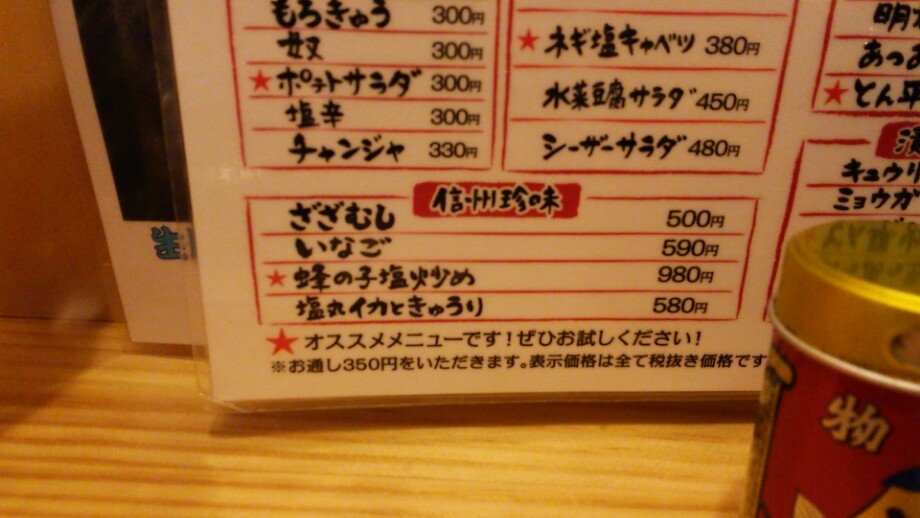 もろきゅう 300円
奴 300円
★ポテトサラダ 300円
塩辛 300円
チャンジャ 330円
★ネギ塩キャベツ 380円
水菜豆腐サラダ 450円
シーザーサラダ 480円
信州珍味
ざざむし 500円
いなご 590円
★蜂の子塩炒め 980円
塩丸イカときゅうり 580円
★オススメメニューです!ぜひお試しください!
※お通し350円をいただきます。表示価格は全て税抜き価格です
明
あつ
★とん平
キュウリ
ミョウガ
物